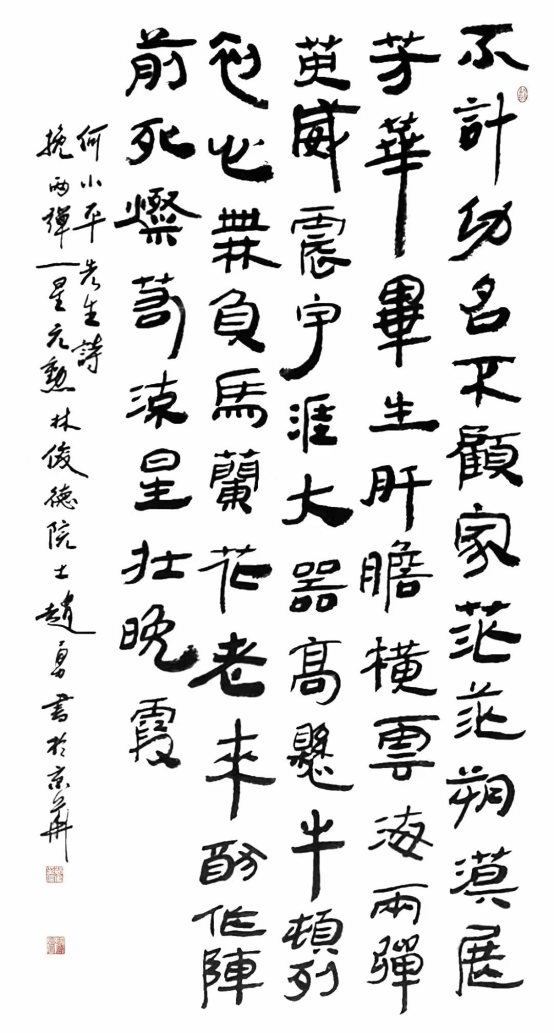 不計功名不顧家茫茫朔漠展
芳華畢生肝膽橫雲海兩彈
英威震宇涯大器高懸牛頓列
初心無負馬蘭花老來作陣
前死燦若流星壯晚霞
何小平先生詩
挽兩彈一星元勳林俊德院士趙勇書於京華